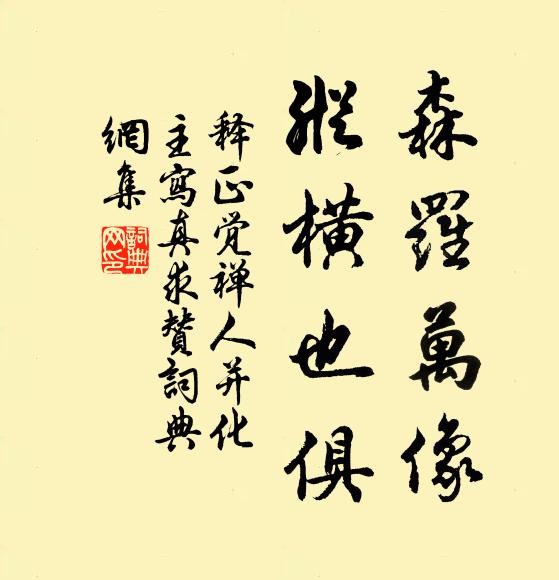 森羅萬像
縱橫也俱
释正觉禅人并化
主寫真求贊詞典
網集
詞典
网印